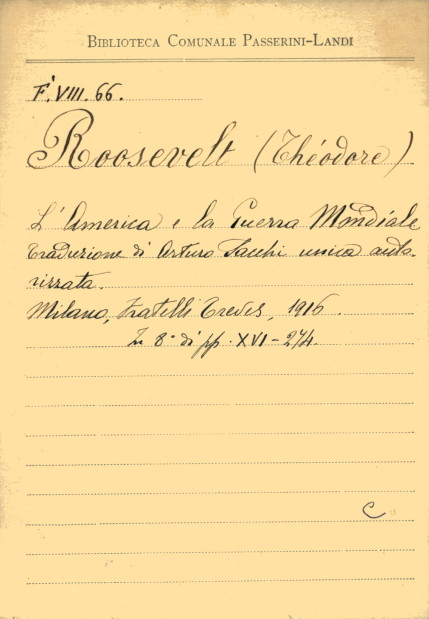 BIBLIOTECA COMUNALE PASSERINI-LANDI
F. VIII. 66.
Roosevelt (Théodore)
L'America e la Guerra Mondiale
traduzione di Arturo Sacchi unica auto-
rizzata.
Milano, Fratelli Treves, 1916.
In 8° di pp. XVI-274.
C